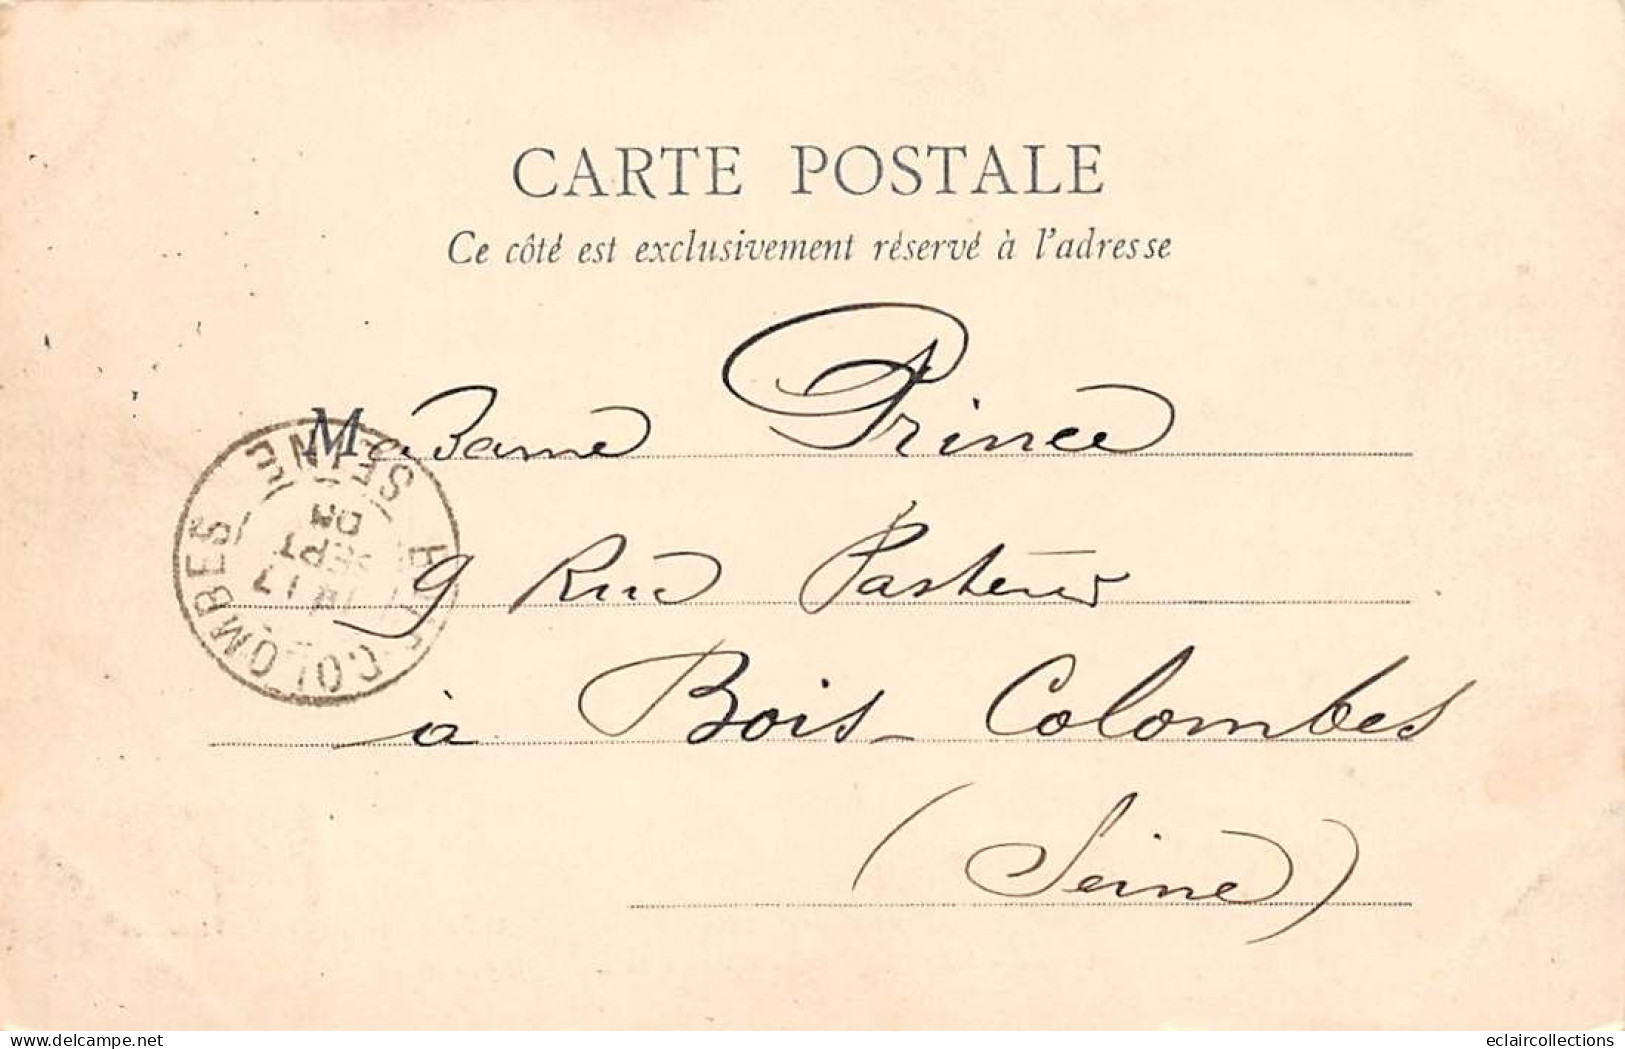 CARTE POSTALE
Ce côté est exclusivement réservé à l'adresse
Madame Prince
9 Rue Pasteur
à Bois-Colombes
(Seine)
COLOMBES
SEINE
17
SEPT
delcampe.net
eclaircollections